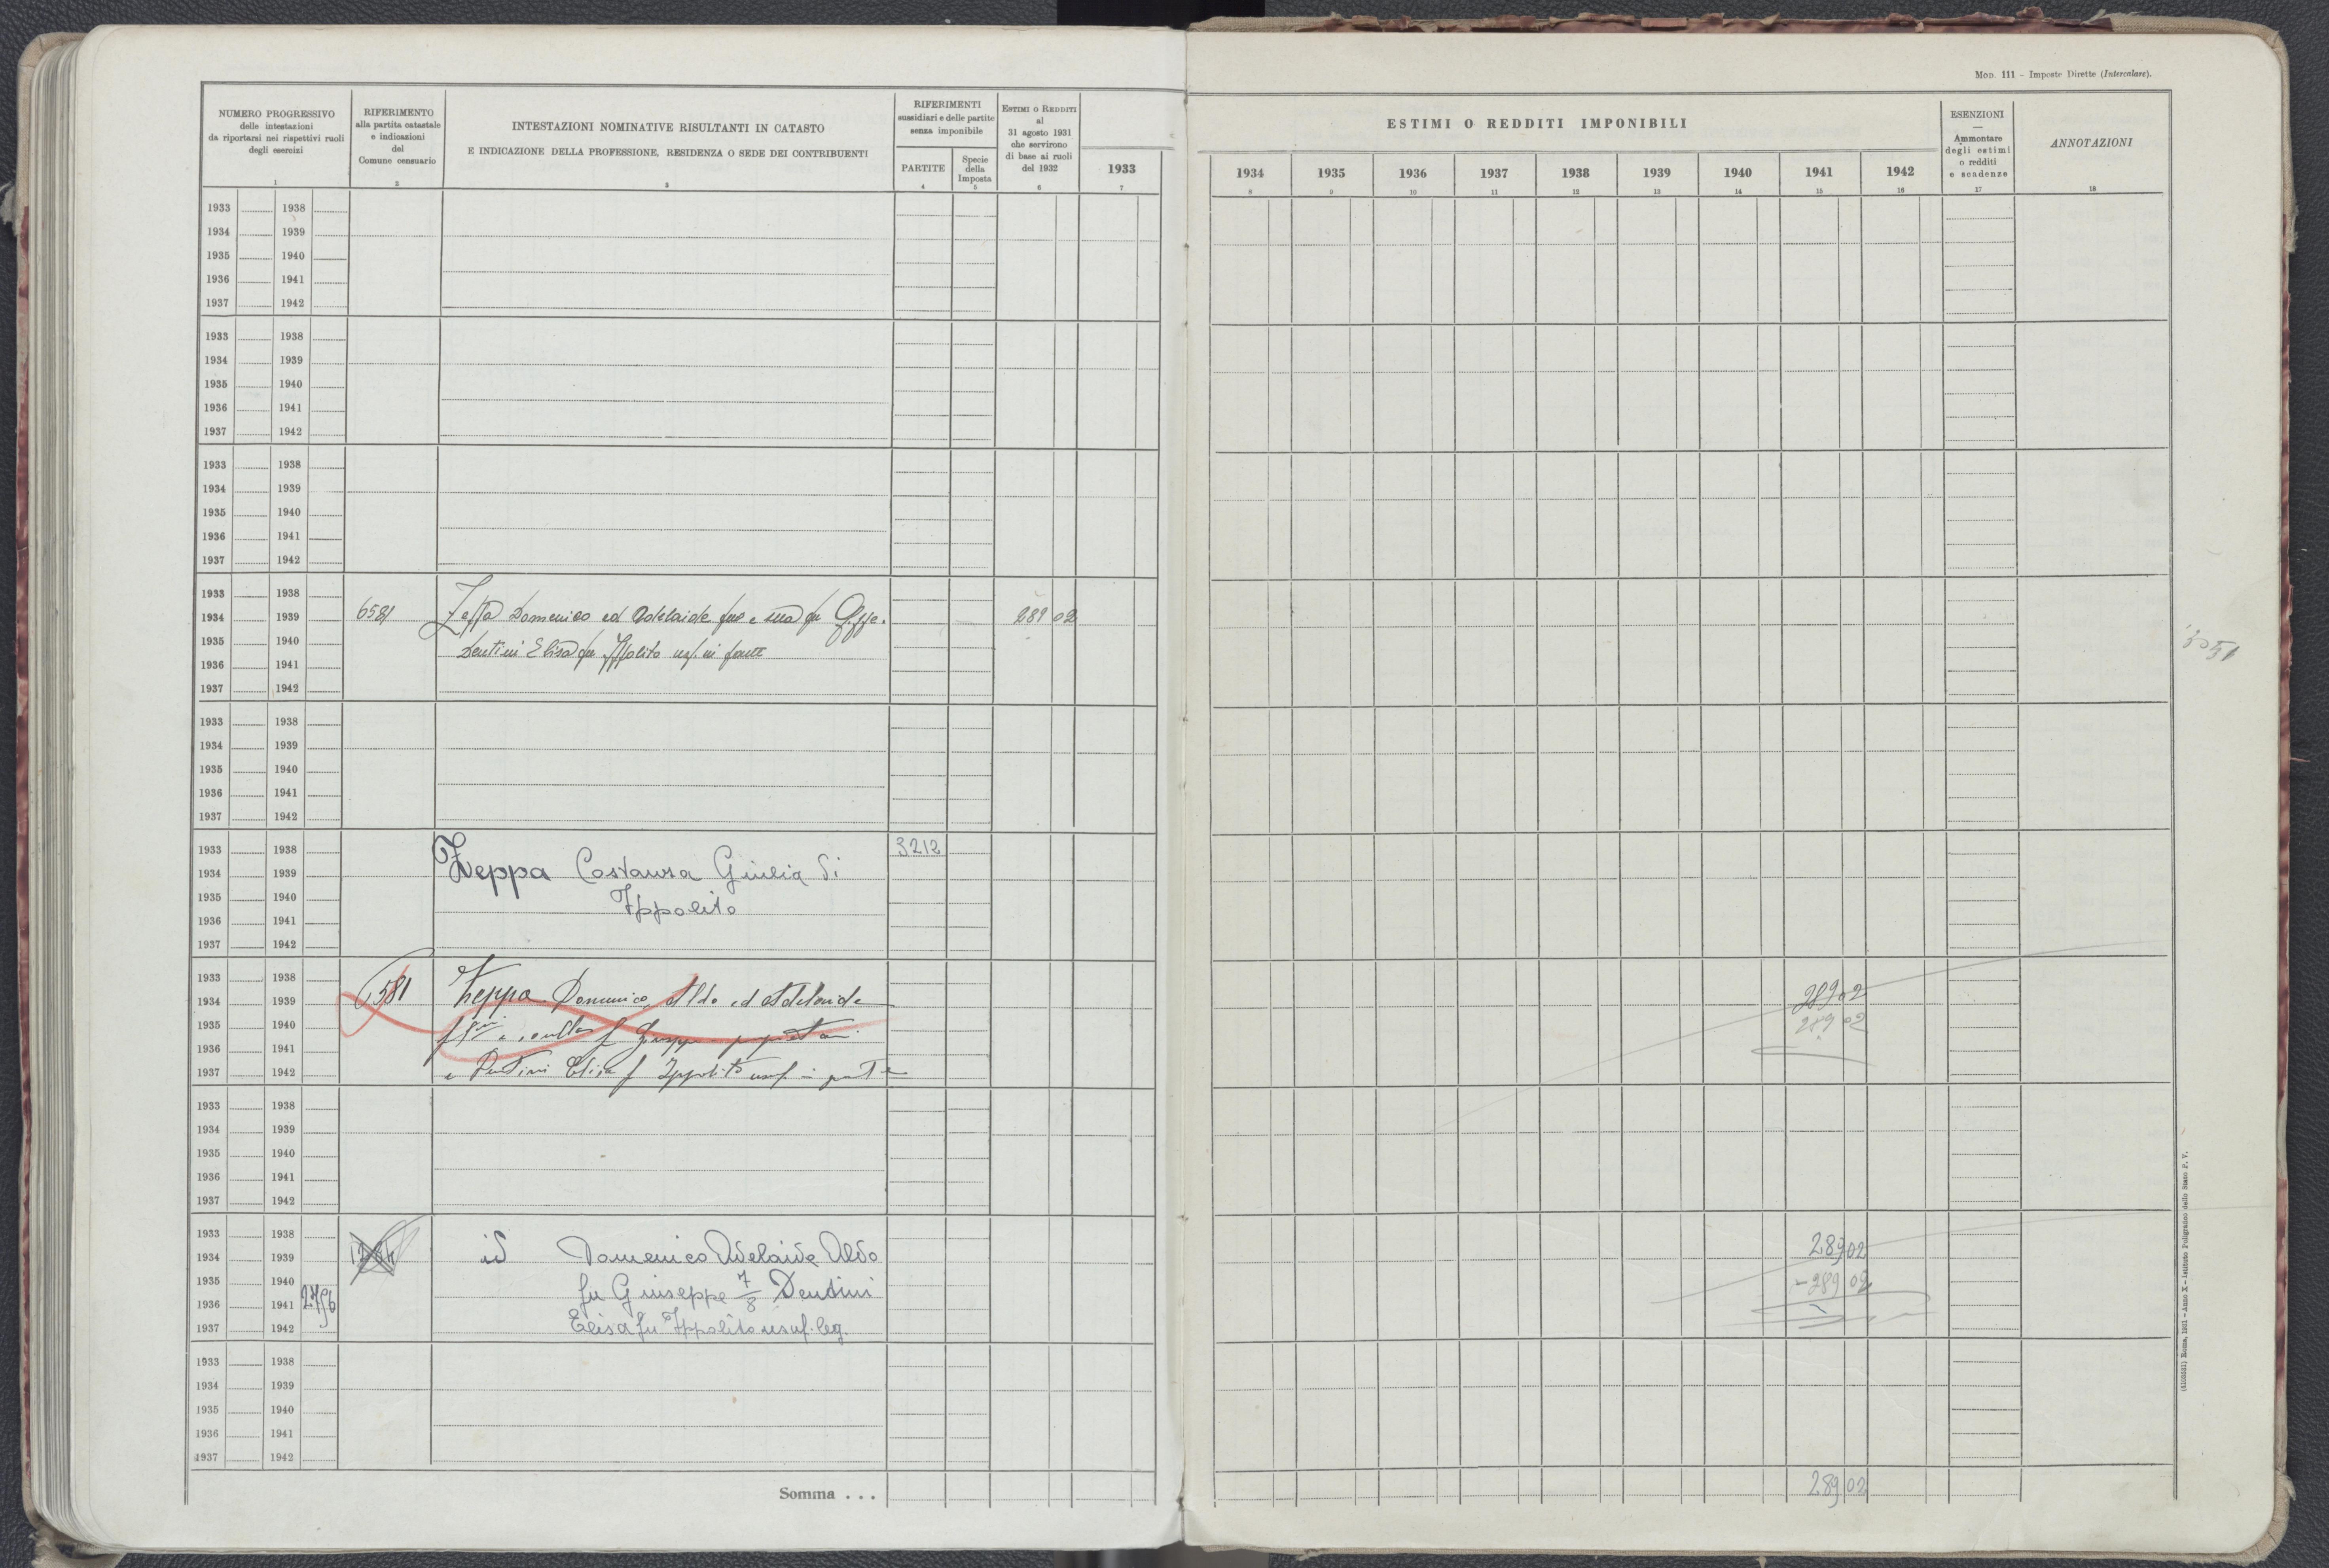 Mod. 111 - Imposte Dirette (Intercalare).
NUMERO PROGRESSIVO
delle intestazioni
da riportarsi nei rispettivi ruoli
degli esercizi
1
RIFERIMENTO
alla partita catastale
e indicazioni
del
Comune censuario
2
INTESTAZIONI NOMINATIVE RISULTANTI IN CATASTO
E INDICAZIONE DELLA PROFESSIONE, RESIDENZA O SEDE DEI CONTRIBUENTI
3
RIFERIMENTI
sussidiari e delle partite
senza imponibile
PARTITE
4
Specie
della
Imposta
5
Estimi o Redditi
al
31 agosto 1931
che servirono
di base ai ruoli
del 1932
6
1933
7
ESTIMI O REDDITI IMPONIBILI
1934 1935 1936 1937 1938 1939 1940 1941 1942
8 9 10 11 12 13 14 15 16
ESENZIONI
—
Ammontare
degli estimi
o redditi
e scadenze
17
ANNOTAZIONI
18
1933 1938
1934 1939
1935 1940
1936 1941
1937 1942
1933 1938
1934 1939
1935 1940
1936 1941
1937 1942
1933 1938
1934 1939
1935 1940
1936 1941
1937 1942
1933 1938
1934 1939 6581 Zeppa Domenico ed Adelaide fu Gppe. 289 02
1935 1940 Dentini Elisa fu Ippolito usf. in parte
1936 1941
1937 1942
1933 1938
1934 1939
1935 1940
1936 1941
1937 1942
1933 1938 3212
1934 1939 Zeppa Costanza Giulia di
1935 1940 Ippolito
1936 1941
1937 1942
1933 1938
1934 1939 6581 Zeppa Domenico Aldo ed Adelaide 289 02
1935 1940 f Giuseppe 289 02
1936 1941
1937 1942 e Dentini Elisa f Ippolito usuf in parte
1933 1938
1934 1939
1935 1940
1936 1941
1937 1942
1933 1938
1934 1939 id Domenico Adelaide Aldo 289 02
1935 1940 fu Giuseppe 7/8 Dentini - 289 02
1936 1941
1937 1942 Elisa fu Ippolito usuf. leg.
1933 1938
1934 1939
1935 1940
1936 1941
1937 1942
Somma . . . 289 02
Roma, 1931 - Anno X - Istituto Poligrafico dello Stato P. V.